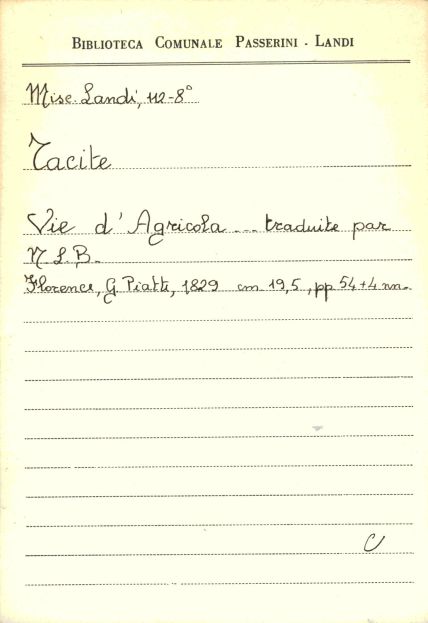 BIBLIOTECA COMUNALE PASSERINI - LANDI
Misc. Landi, 112-8°
Tacite
Vie d'Agricola ... traduite par
N.L.B.
Florence, G. Piatti, 1829 cm 19,5, pp 54+4 nn.
C